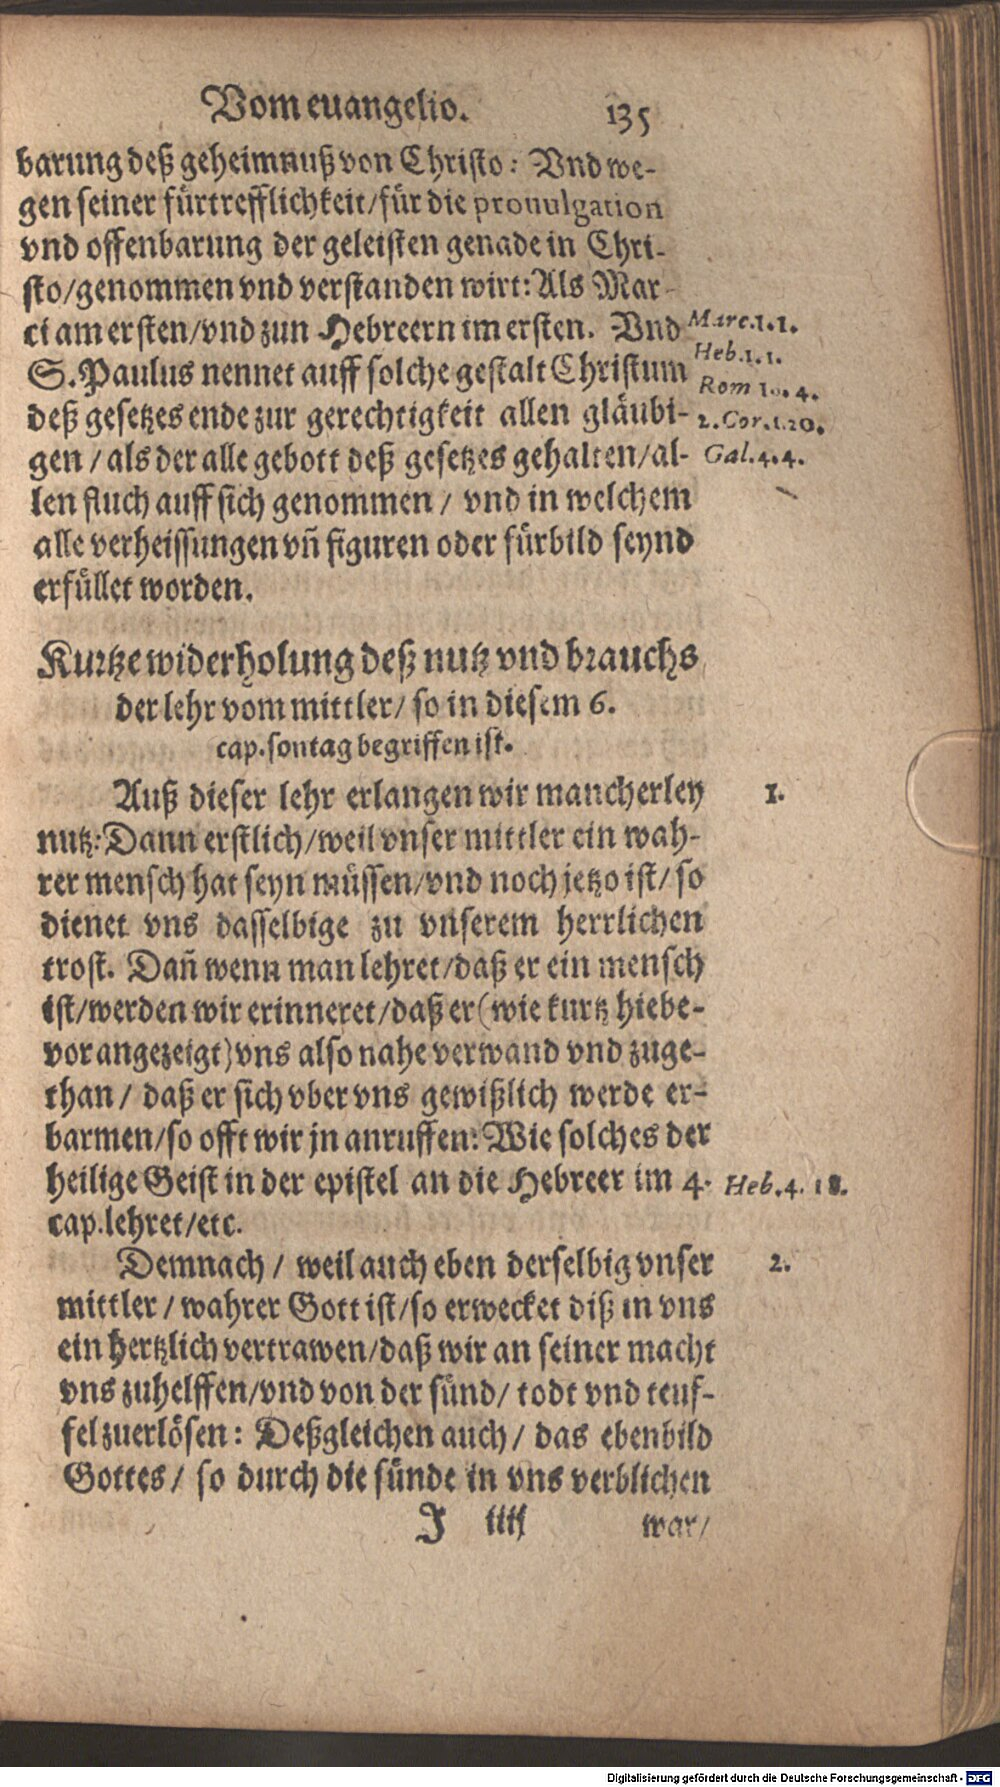 Vom euangelio. 135
barung deß geheimnuß von Christo: Vnd we-
gen seiner fürtrefflichkeit/für die prouulgation
vnd offenbarung der geleisten genade in Chri-
sto/genommen vnd verstanden wirt: Als Mar-
ci am ersten/vnd zun Hebreern im ersten. Vnd Marc.1.1.
Heb.1.1.
S. Paulus nennet auff solche gestalt Christum Rom 10.4.
deß gesetzes ende zur gerechtigkeit allen gläubi- 2.Cor.1.20.
gen / als der alle gebott deß gesetzes gehalten/al- Gal.4.4.
len fluch auff sich genommen / vnd in welchem
alle verheissungen vñ figuren oder fürbild seynd
erfüllet worden.
Kurtze widerholung deß nutz vnd brauchs
der lehr vom mittler/ so in diesem 6.
cap. sontag begriffen ist.
Auß dieser lehr erlangen wir mancherley 1.
nutz: Dann erstlich/weil vnser mittler ein wah-
rer mensch hat seyn müssen/vnd noch jetzo ist/ so
dienet vns dasselbige zu vnserem herrlichen
trost. Dañ wenn man lehret/daß er ein mensch
ist/werden wir erinneret/daß er (wie kurtz hiebe-
vor angezeigt) vns also nahe verwand vnd zuge-
than / daß er sich vber vns gewißlich werde er-
barmen/so offt wir jn anruffen: Wie solches der
heilige Geist in der epistel an die Hebreer im 4. Heb.4. 18.
cap. lehret/etc.
Demnach / weil auch eben derselbig vnser 2.
mittler / wahrer Gott ist/so erwecket diß in vns
ein hertzlich vertrawen/daß wir an seiner macht
vns zuhelffen/vnd von der sünd/ todt vnd teuf-
fel zuerlösen: Deßgleichen auch / das ebenbild
Gottes / so durch die sünde in vns verblichen
J iiij war/
Digitalisierung gefördert durch die Deutsche Forschungsgemeinschaft - DFG